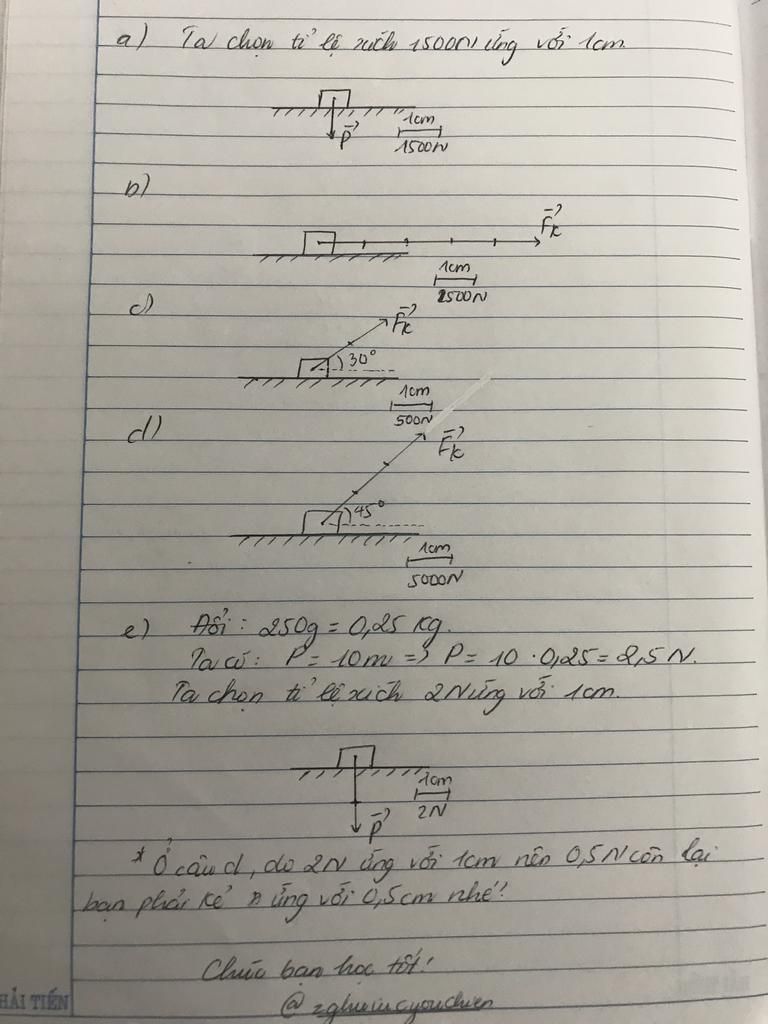 a) Ta chọn tỉ lệ xích 1500N ứng với 1cm.
1cm
P
1500N
b)
Fk
1cm
2500N
c)
Fk
30°
1cm
500N
d)
Fk
45°
1cm
5000N
e) Đổi: 250g = 0,25 kg.
Ta có: P = 10m => P = 10 . 0,25 = 2,5 N.
Ta chọn tỉ lệ xích 2N ứng với 1cm.
1cm
2N
P
* Ở câu d, do 2N ứng với 1cm nên 0,5N còn lại
bạn phải kẻ ứng với 0,5cm nhé!
Chúc bạn học tốt!
HẢI TIẾN